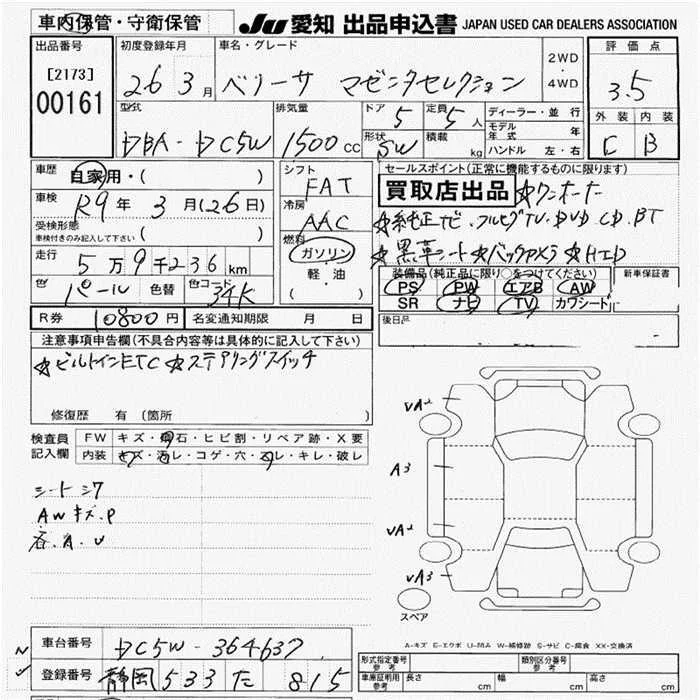 車内保管・守衛保管
JU 愛知 出品申込書 JAPAN USED CAR DEALERS ASSOCIATION
出品番号 初度登録年月 車名・グレード 2WD・4WD 評価点
[2173]
00161
26 3月 ベリーサ マゼンタセレクション 3.5
型式 排気量 ドア 5 定員 5人 ディーラー・並行 外装 内装
モデル年式 年
DBA-DC5W 1500CC 形状 SW 積載 kg ハンドル 左・右 C B
車歴 自家用・( ) シフト セールスポイント(正常に機能するものに限ります)
FAT
車検 R9年 3月(26日) 冷房 買取店出品 ☆ワンオーナー
AAC
受検形態 ( ) ☆純正ナビ・フルセグTV・DVD・CD・BT
車検付きのみ記入して下さい
燃料 ☆黒革シート ☆バックカメラ ☆HID
走行 5万9千236km ガソリン 装備品(純正品に限り○をつけてください) 新車保証書
軽・油 PS PW エアB AW
色 パール 色替 色コード 34K ( ) SR ナビ TV カワシート
R券 10800円 名変通知期限 月 日 後日品
注意事項申告欄(不具合内容等は具体的に記入して下さい)
☆ビルトインETC ☆ステアリングスイッチ
修復歴 有 (箇所 )
検査員記入欄 FW キズ・飛石・ヒビ割・リペア跡・X要
内装 キズ・汚レ・コゲ・穴・スレ・キレ・破レ
シートシワ
AWキズ.P
各.A.U
UA2
A3
UA2
UA3
スペア
A-キズ E-エクボ U-凹み W-補修跡 S-サビ C-腐食 XX-交換済
車台番号 DC5W-364637
形式指定番号 参考 類別区分番号 参考
登録番号 静岡 533 た 815
車庫証明用 参考 長さ cm 幅 cm 高さ cm